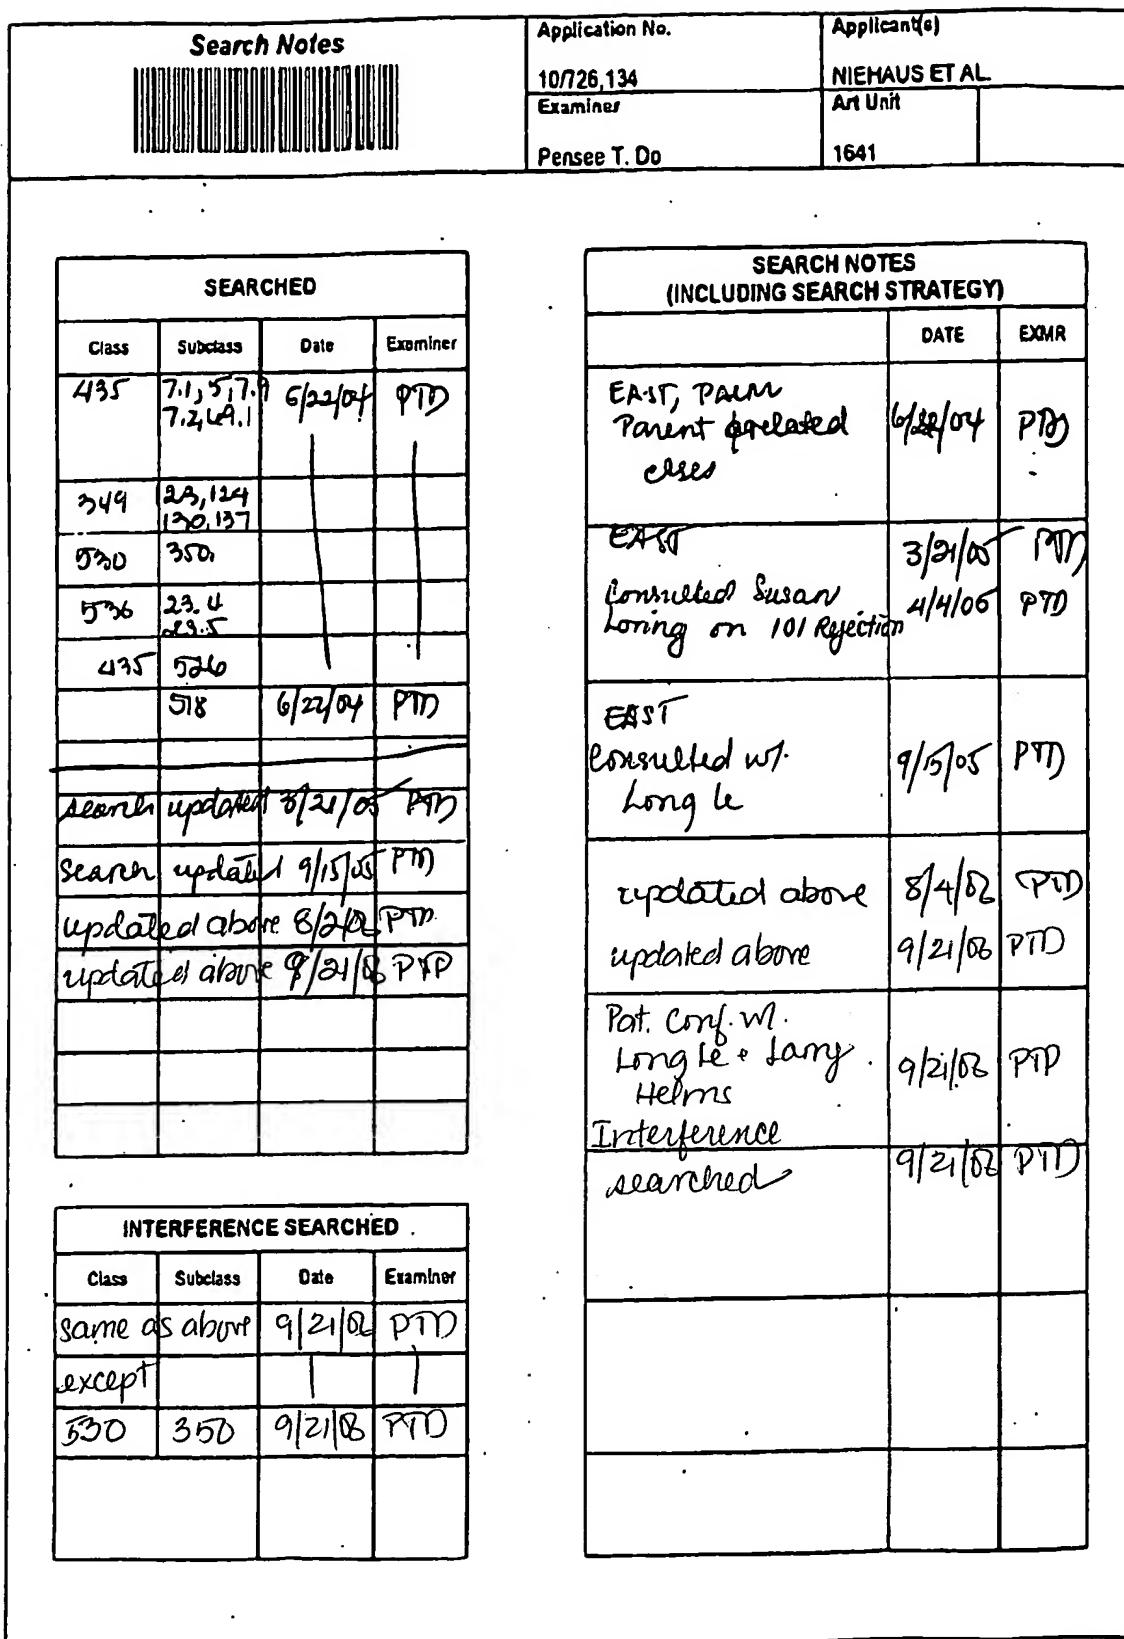 Search Notes
Application No.
10/726,134
Applicant(s)
NIEHAUS ET AL.
Examiner
Pensee T. Do
Art Unit
1641
SEARCHED
Class Subclass Date Examiner
435 7.1, 5, 7.9 6/22/04 PTD
7.2, 69.1
349 23, 124
130, 137
530 350
536 23.4
23.5
435 526
518 6/22/04 PTD
search updated 3/21/05 PTD
search updated 9/15/05 PTD
updated above 8/2/06 PTD
updated above 9/21/06 PTD
INTERFERENCE SEARCHED
Class Subclass Date Examiner
same as above 9/21/06 PTD
except
530 350 9/21/06 PTD
SEARCH NOTES
(INCLUDING SEARCH STRATEGY)
DATE EXMR
EAST, PALM
Parent related 6/22/04 PTD
cases
EAST 3/21/05 PTD
Consulted Susan 4/4/05 PTD
Loring on 101 Rejection
EAST
Consulted w/. 9/15/05 PTD
Long Le
updated above 8/4/06 PTD
updated above 9/21/06 PTD
Pat. Conf. w/.
Long Le + Larry 9/21/06 PTD
Helms
Interference
searched 9/21/06 PTD